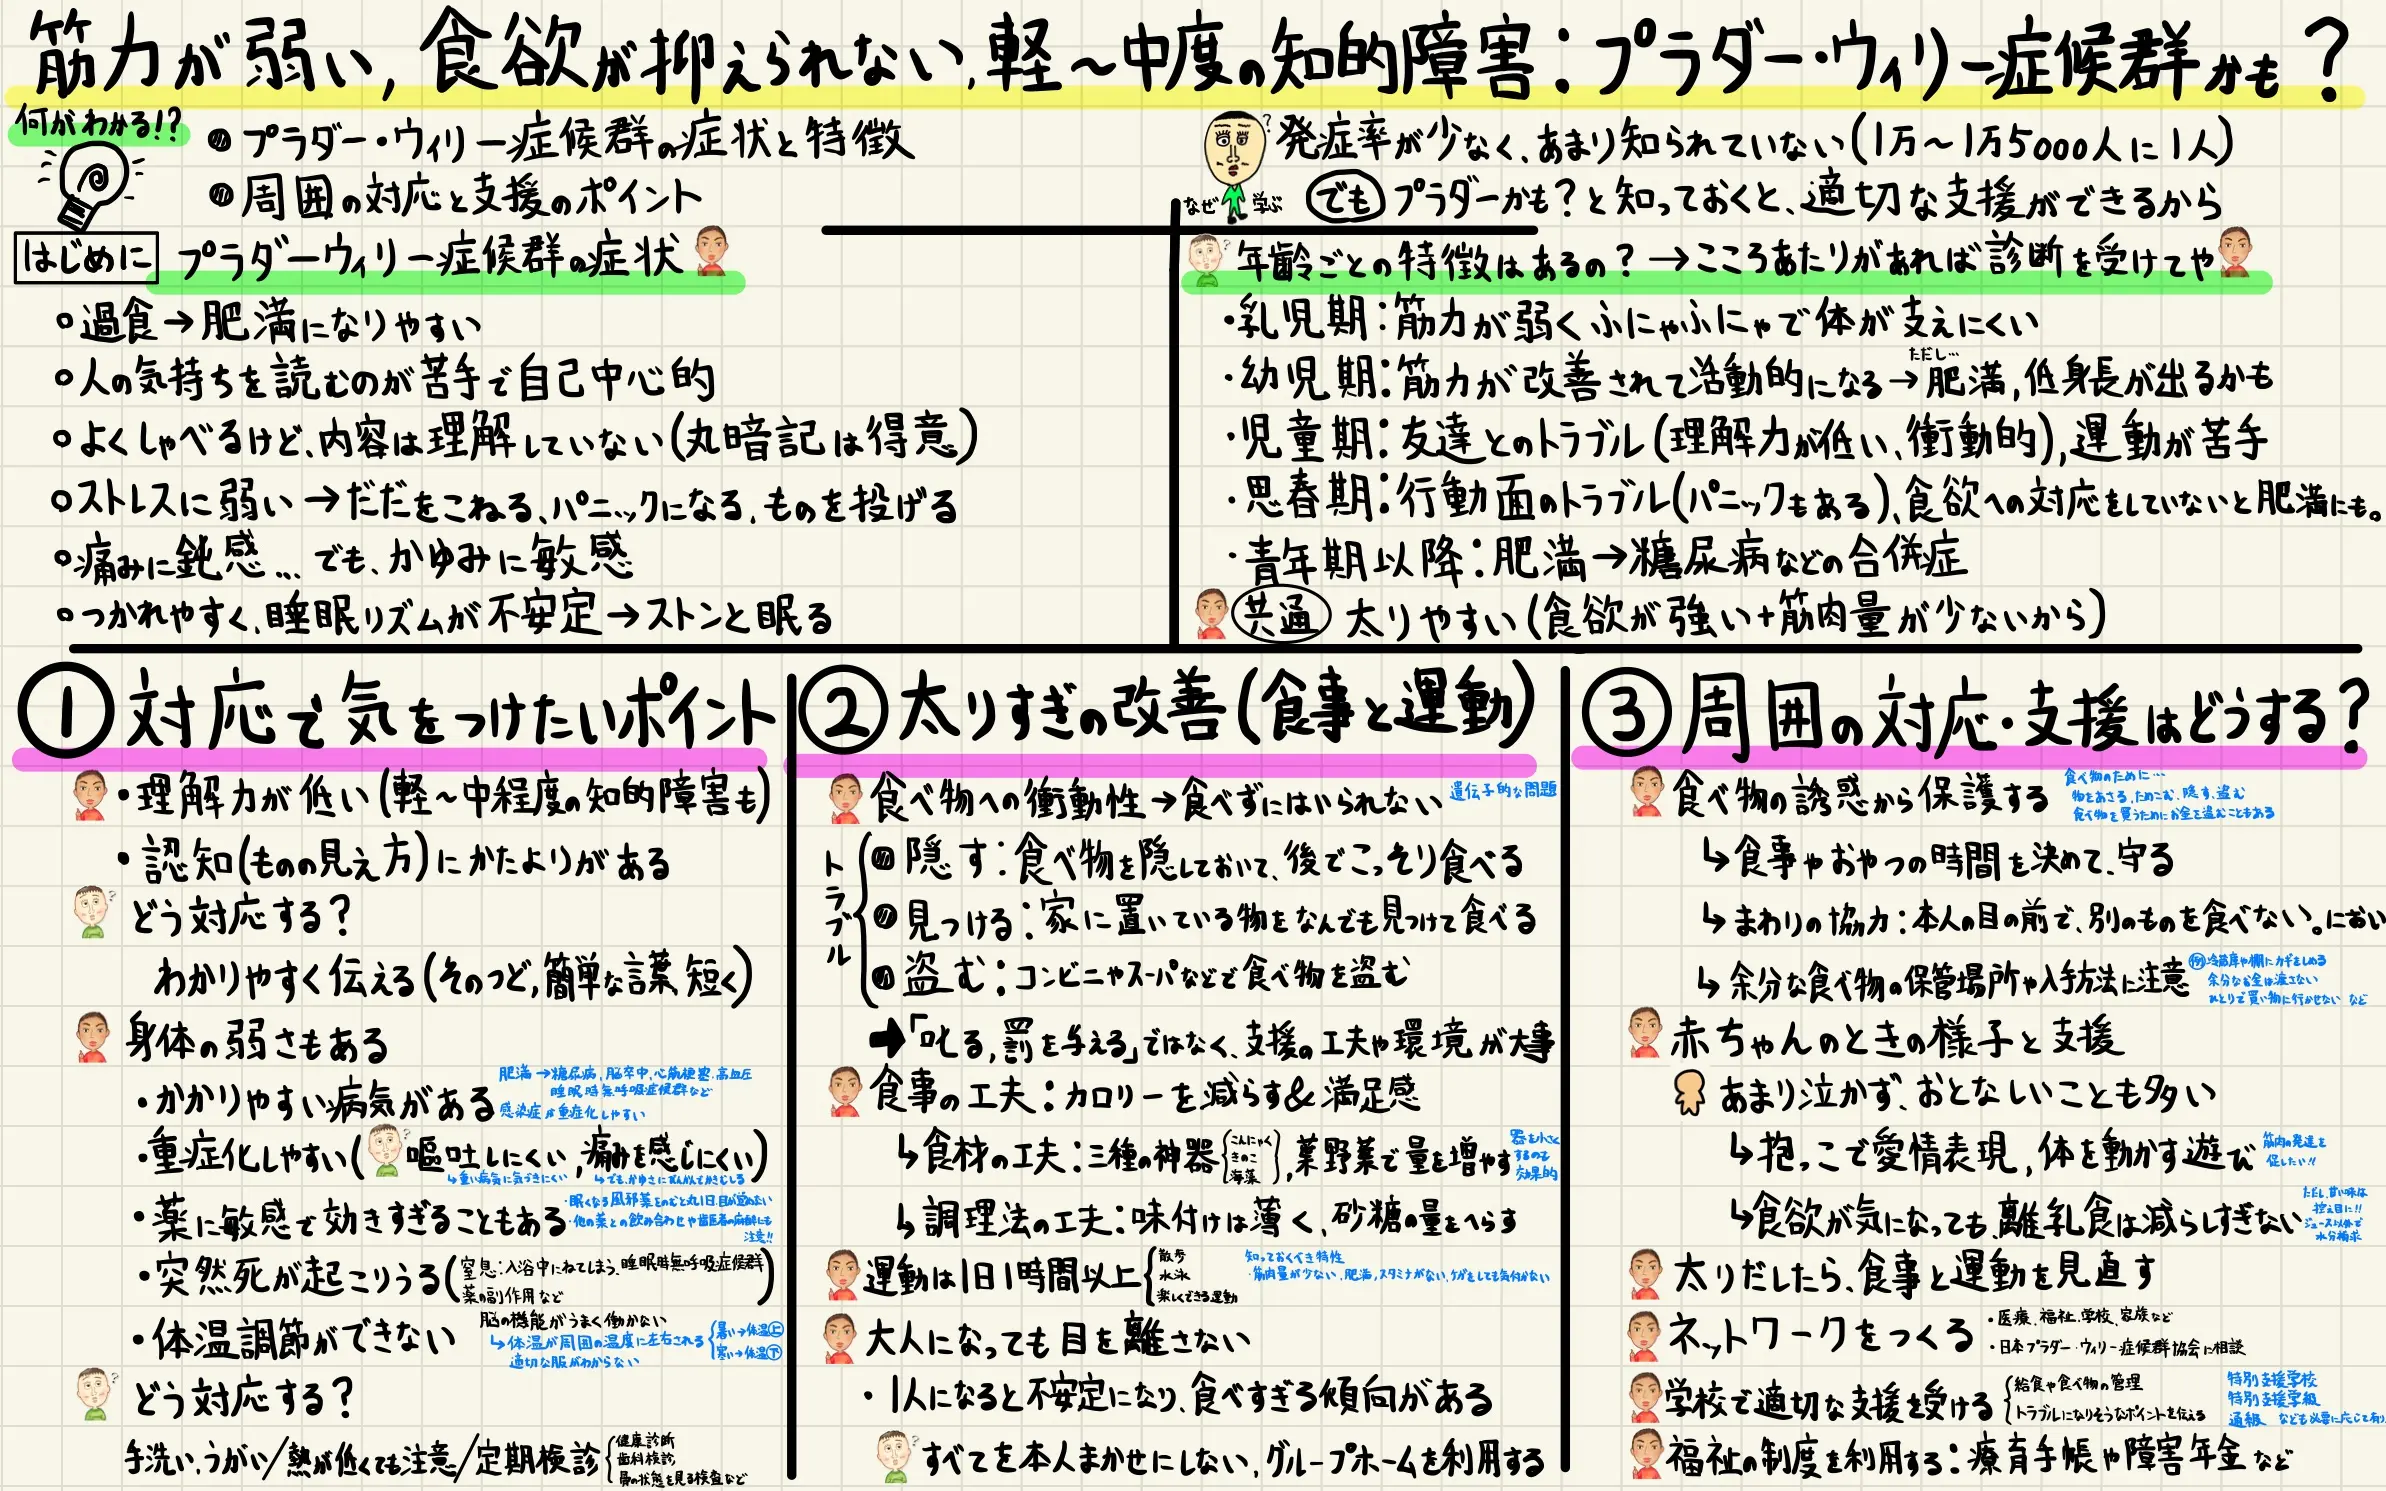 筋力が弱い,食欲が抑えられない,軽〜中度の知的障害:プラダー・ウィリー症候群かも?
何がわかる!?
プラダー・ウィリー症候群の症状と特徴
周囲の対応と支援のポイント
なぜ 学ぶ
発症率が少なく、あまり知られていない(1万〜1万5000人に1人)
でも プラダーかも?と知っておくと、適切な支援ができるから
はじめに プラダーウィリー症候群の症状
過食→肥満になりやすい
人の気持ちを読むのが苦手で自己中心的
よくしゃべるけど、内容は理解していない(丸暗記は得意)
ストレスに弱い→だだをこねる、パニックになる、ものを投げる
痛みに鈍感…でも、かゆみに敏感
つかれやすく、睡眠リズムが不安定→ストンと眠る
年齢ごとの特徴はあるの?→こころあたりがあれば診断を受けてや
・乳児期:筋力が弱くふにゃふにゃで体が支えにくい
ただし…
・幼児期:筋力が改善されて活動的になる→肥満,低身長が出るかも
・児童期:友達とのトラブル(理解力が低い、衝動的),運動が苦手
・思春期:行動面のトラブル(パニックもある)、食欲への対応をしていないと肥満にも。
・青年期以降:肥満→糖尿病などの合併症
共通 太りやすい(食欲が強い+筋肉量が少ないから)
① 対応で気をつけたいポイント
・理解力が低い(軽〜中程度の知的障害も)
・認知(ものの見え方)にかたよりがある
どう対応する?
わかりやすく伝える(そのつど,簡単な言葉、短く)
身体の弱さもある
・かかりやすい病気がある
肥満→糖尿病、脳卒中、心筋梗塞、高血圧
睡眠時無呼吸症候群など
感染症が重症化しやすい
・重症化しやすい(嘔吐しにくい,痛みを感じにくい)
↳重い病気に気づきにくい
↳でも、かゆさにがんがんでかきむしる
・薬に敏感で効きすぎることもある
・眠くなる風邪薬をのむと丸1日、目が覚めない
・他の薬との飲み合わせや歯医者の麻酔にも
注意!!
・突然死が起こりうる(窒息:入浴中にねてしまう、睡眠時無呼吸症候群
薬の副作用など)
・体温調節ができない
脳の機能がうまく働かない
↳体温が周囲の温度に左右される
暑い→体温上
寒い→体温下
適切な服がわからない
どう対応する?
手洗い、うがい/熱が低くても注意/定期検診
健康診断
歯科検診
骨の状態を見る検査など
② 太りすぎの改善(食事と運動)
食べ物への衝動性→食べずにはいられない
遺伝子的な問題
トラブル
隠す:食べ物を隠しておいて、後でこっそり食べる
見つける:家に置いている物をなんでも見つけて食べる
盗む:コンビニやスーパなどで食べ物を盗む
➡「叱る,罰を与える」ではなく、支援の工夫や環境が大事
食事の工夫:カロリーを減らす&満足感
↳食材の工夫:三種の神器{こんにゃく
きのこ
海藻},葉野菜で量を増やす
器を小さく
するのも
効果的
↳調理法の工夫:味付けは薄く、砂糖の量をへらす
運動は1日1時間以上
散歩
水泳
楽しくできる運動
知っておくべき特性
・筋肉量が少ない、肥満,スタミナがない、ケガをしても気付かない
大人になっても目を離さない
・1人になると不安定になり、食べすぎる傾向がある
すべてを本人まかせにしない,グループホームを利用する
③ 周囲の対応・支援はどうする?
食べ物の誘惑から保護する
食べ物のために…
物をあさる,ためこむ、隠す、盗む
食べ物を買うためにお金を盗むこともある
↳食事やおやつの時間を決めて、守る
↳まわりの協力:本人の目の前で、別のものを食べない。におい
↳余分な食べ物の保管場所や入手方法に注意
例 冷蔵庫や棚にカギをしめる
余分なお金は渡さない
ひとりで買い物に行かせない など
赤ちゃんのときの様子と支援
あまり泣かず、おとなしいことも多い
↳抱っこで愛情表現,体を動かす遊び
筋肉の発達を
促したい!!
↳食欲が気になっても、離乳食は減らしすぎない
ただし、甘い味は
控え目に!!
ジュース以外で
水分補求
太りだしたら、食事と運動を見直す
ネットワークをつくる
・医療、福祉、学校、家族など
・日本プラダー・ウィリー症候群協会に相談
学校で適切な支援を受ける
給食や食べ物の管理
トラブルになりそうなポイントを伝える
特別支援学校
特別支援学級
通級 なども必要に応じて有り
福祉の制度を利用する:療育手帳や障害年金など